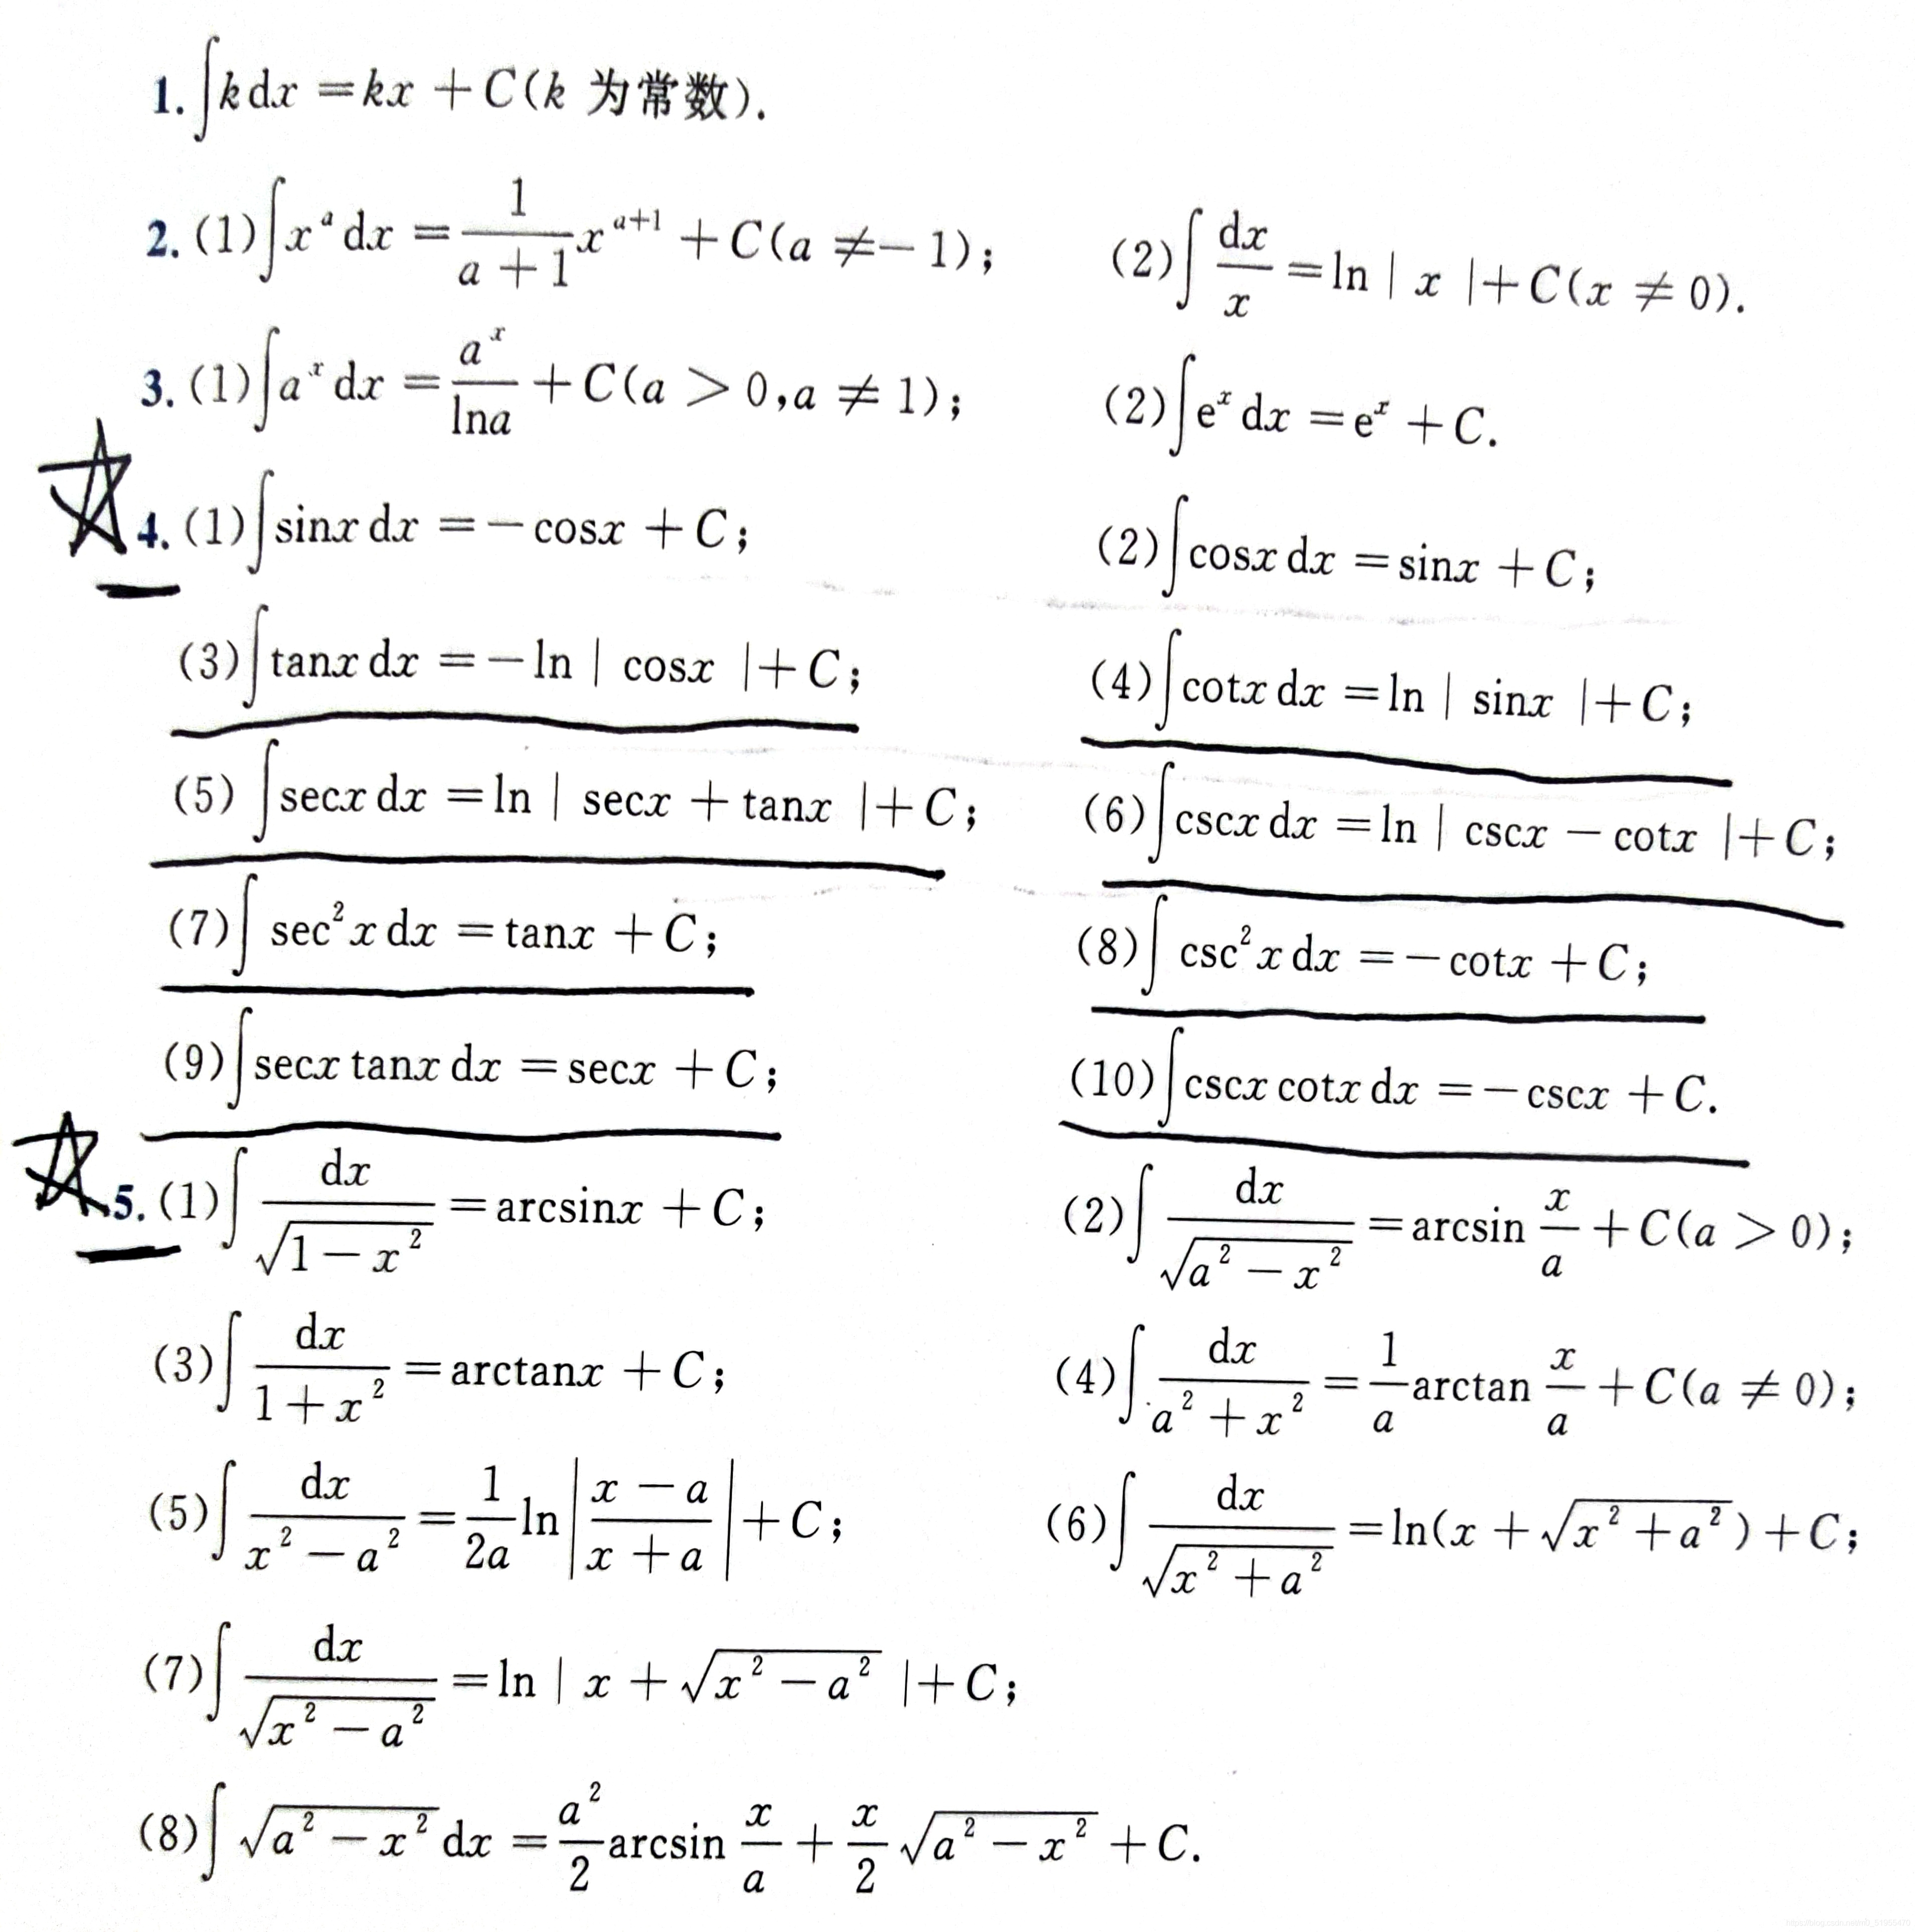 1. ∫kdx = kx + C(k 为常数).
2. (1)∫x^a dx = \frac{1}{a+1}x^{a+1} + C(a ≠ −1); (2)∫\frac{dx}{x} = ln | x | + C(x ≠ 0).
3. (1)∫a^x dx = \frac{a^x}{lna} + C(a > 0, a ≠ 1); (2)∫e^x dx = e^x + C.
4. (1)∫sinx dx = −cosx + C; (2)∫cosx dx = sinx + C;
(3)∫tanx dx = −ln | cosx | + C; (4)∫cotx dx = ln | sinx | + C;
(5)∫secx dx = ln | secx + tanx | + C; (6)∫cscx dx = ln | cscx − cotx | + C;
(7)∫sec²x dx = tanx + C; (8)∫csc²x dx = −cotx + C;
(9)∫secx tanx dx = secx + C; (10)∫cscx cotx dx = −cscx + C.
5. (1)∫\frac{dx}{\sqrt{1−x²}} = arcsinx + C; (2)∫\frac{dx}{\sqrt{a²−x²}} = arcsin\frac{x}{a} + C(a > 0);
(3)∫\frac{dx}{1+x²} = arctanx + C; (4)∫\frac{dx}{a²+x²} = \frac{1}{a}arctan\frac{x}{a} + C(a ≠ 0);
(5)∫\frac{dx}{x²−a²} = \frac{1}{2a}ln|\frac{x−a}{x+a}| + C; (6)∫\frac{dx}{\sqrt{x²+a²}} = ln(x + \sqrt{x²+a²}) + C;
(7)∫\frac{dx}{\sqrt{x²−a²}} = ln | x + \sqrt{x²−a²} | + C;
(8)∫\sqrt{a²−x²}dx = \frac{a²}{2}arcsin\frac{x}{a} + \frac{x}{2}\sqrt{a²−x²} + C.